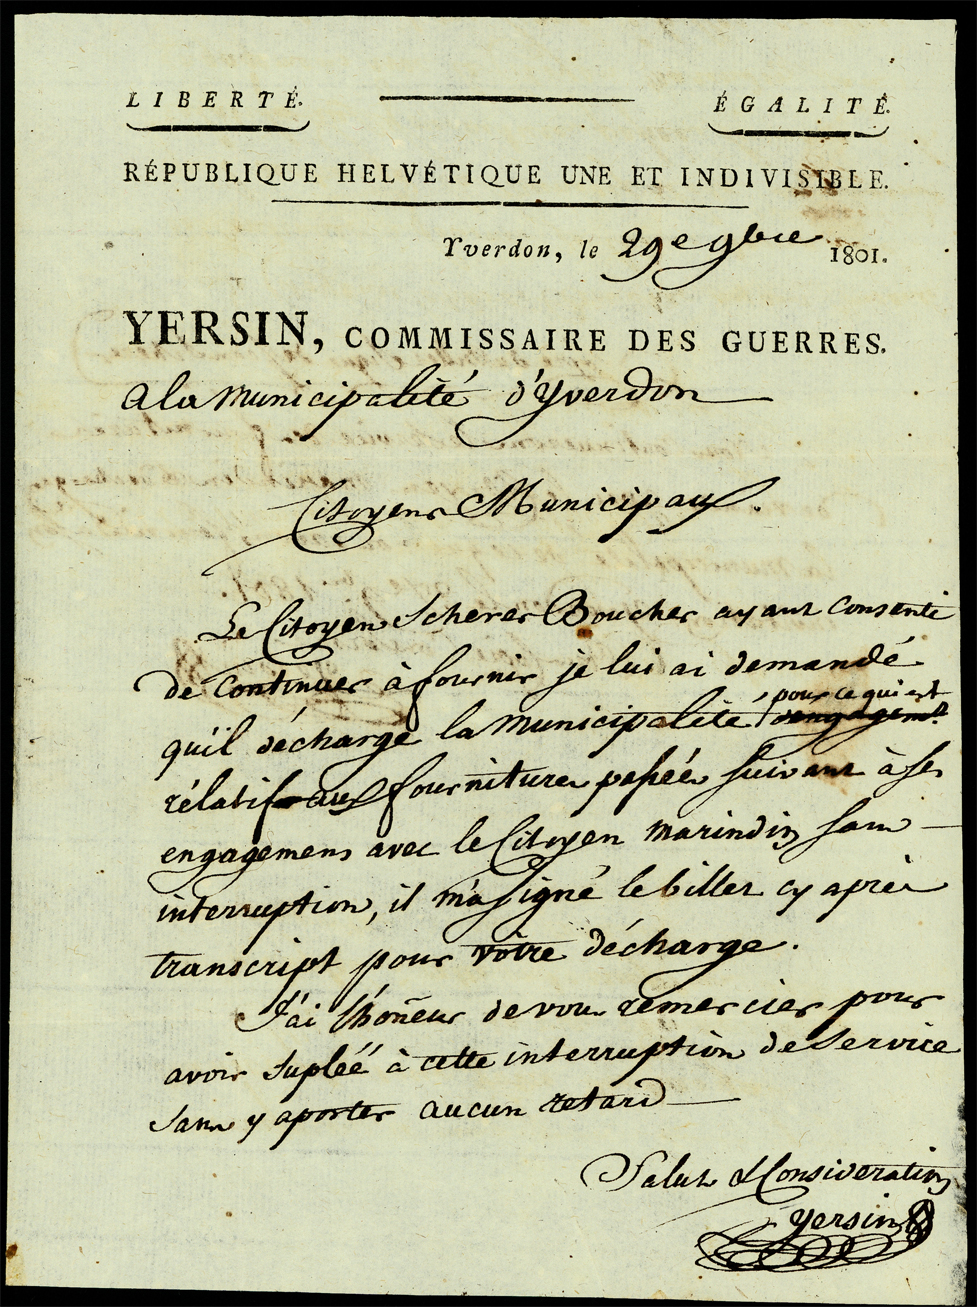 LIBERTÉ. ÉGALITÉ.
RÉPUBLIQUE HELVÉTIQUE UNE ET INDIVISIBLE.
Yverdon, le 29e 9bre 1801.
YERSIN, COMMISSAIRE DES GUERRES.
A la Municipalité d'Yverdon
Citoyens Municipaux.
Le Citoyen Scherer Boucher ayant Consenti
de Continuer à fournir je lui ai demandé
qu'il décharge la Municipalité pour ce qui est
rélatif aux fournitures passées suivant à ses
engagemens avec le Citoyen Marindin sans
interruption, il m'a signé le billet cy après
transcript pour votre décharge.
J'ai l'honneur de vous remercier pour
avoir supléé à cette interruption de Service
sans y aporter aucun retard
Salut & Consideration
Yersin